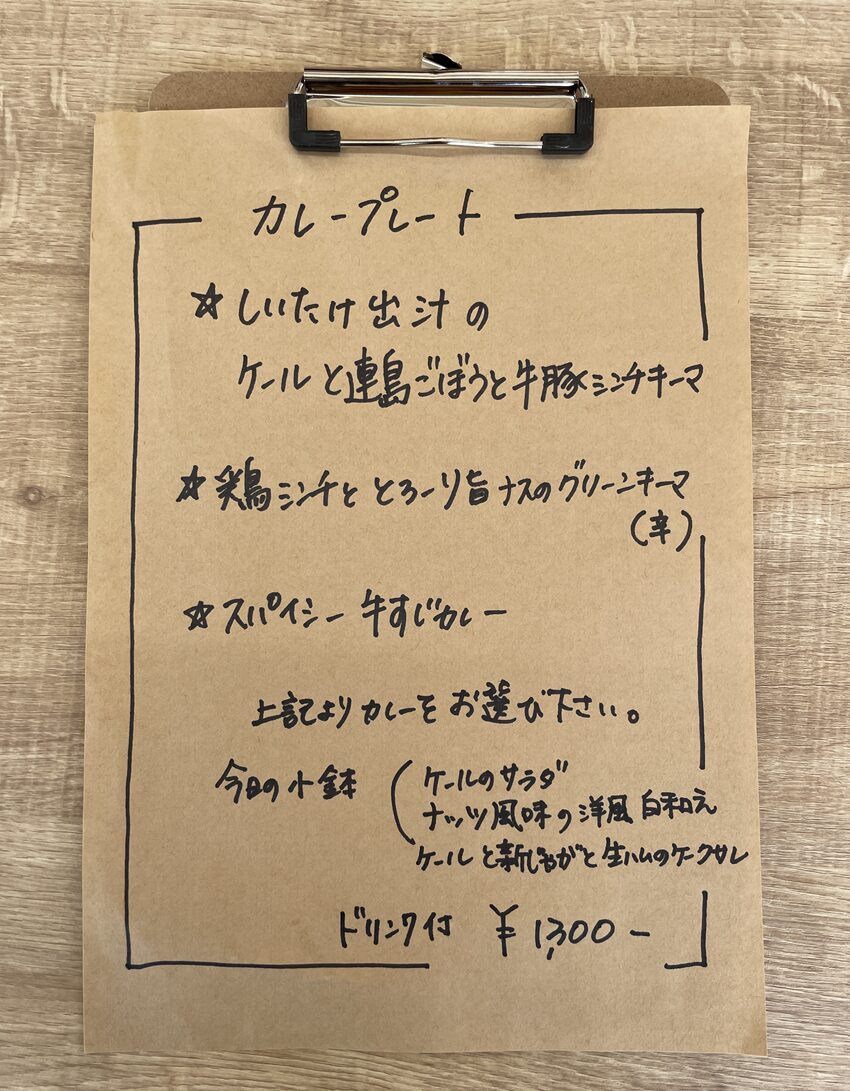 カレープレート
☆しいたけ出汁の
ケールと連島ごぼうと牛豚ミンチキーマ
☆鶏ミンチととろーり旨ナスのグリーンキーマ
(辛)
☆スパイシー牛すじカレー
上記よりカレーをお選び下さい。
今日の小鉢
ケールのサラダ
ナッツ風味の洋風白和え
ケールと新じゃがと生ハムのケークサレ
ドリンク付 ¥1,300-